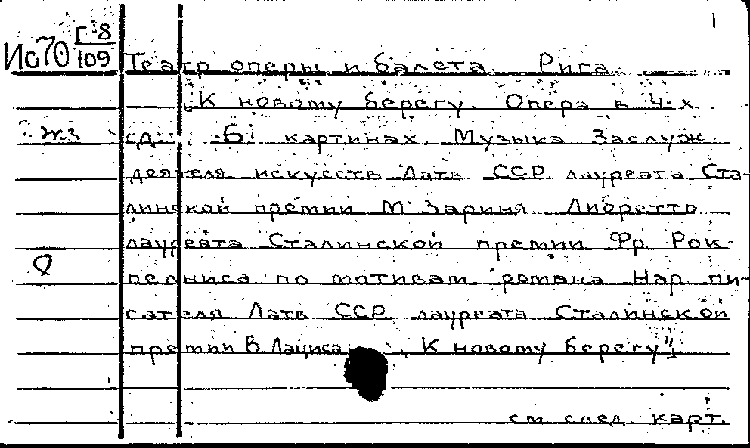 1
Ис70 Г-8/109
Театр оперы и балета. Рига.
К новому берегу. Опера в 4-х
д. 6 картинах. Музыка Заслуж.
деятеля искусств Латв. ССР лауреата Ста-
линской премии М. Зариня. Либретто
лауреата Сталинской премии Фр. Рок-
пельниса по мотивам романа Нар. пи-
сателя Латв. ССР лауреата Сталинской
премии В. Лациса "К новому берегу".
см. след. карт.